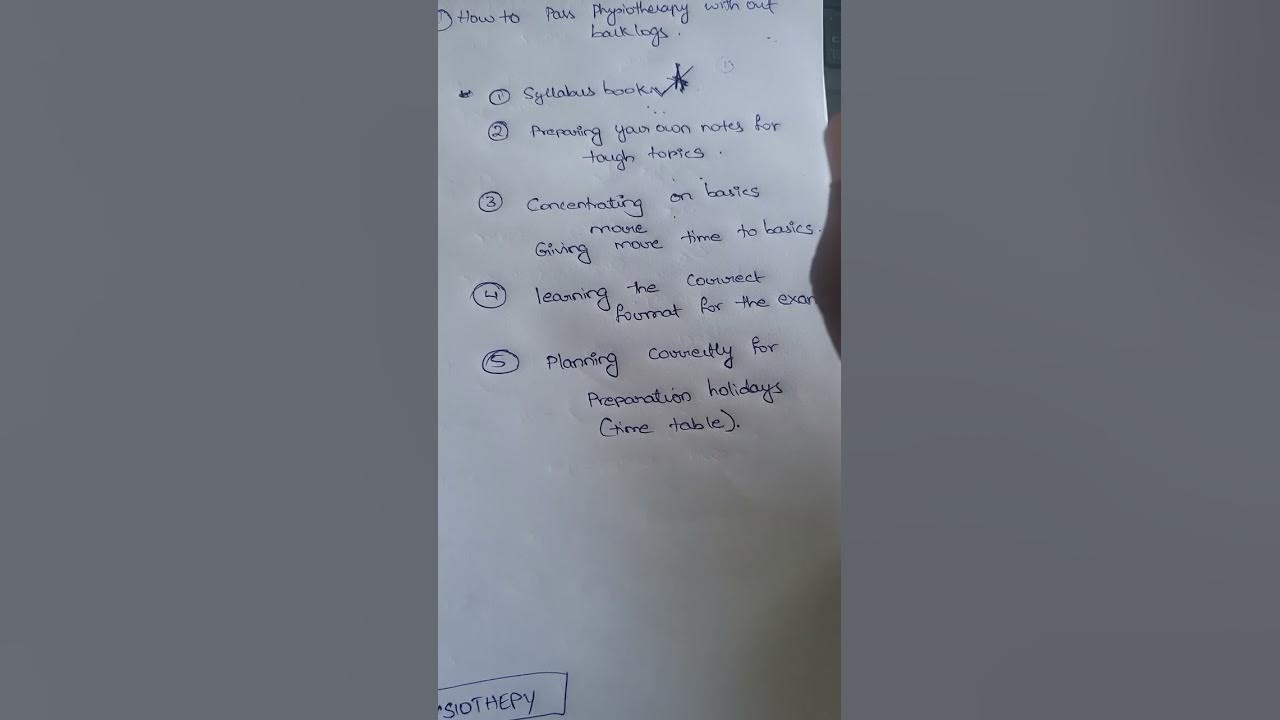 1) How to Pass Physiotherapy with out
backlogs.
① Syllabus book
② Preparing your own notes for
tough topics.
③ Concentrating on basics
more
Giving more time to basics.
④ learning the correct
format for the exam
⑤ Planning correctly for
Preparation holidays
(time table).
SIOTHEPY